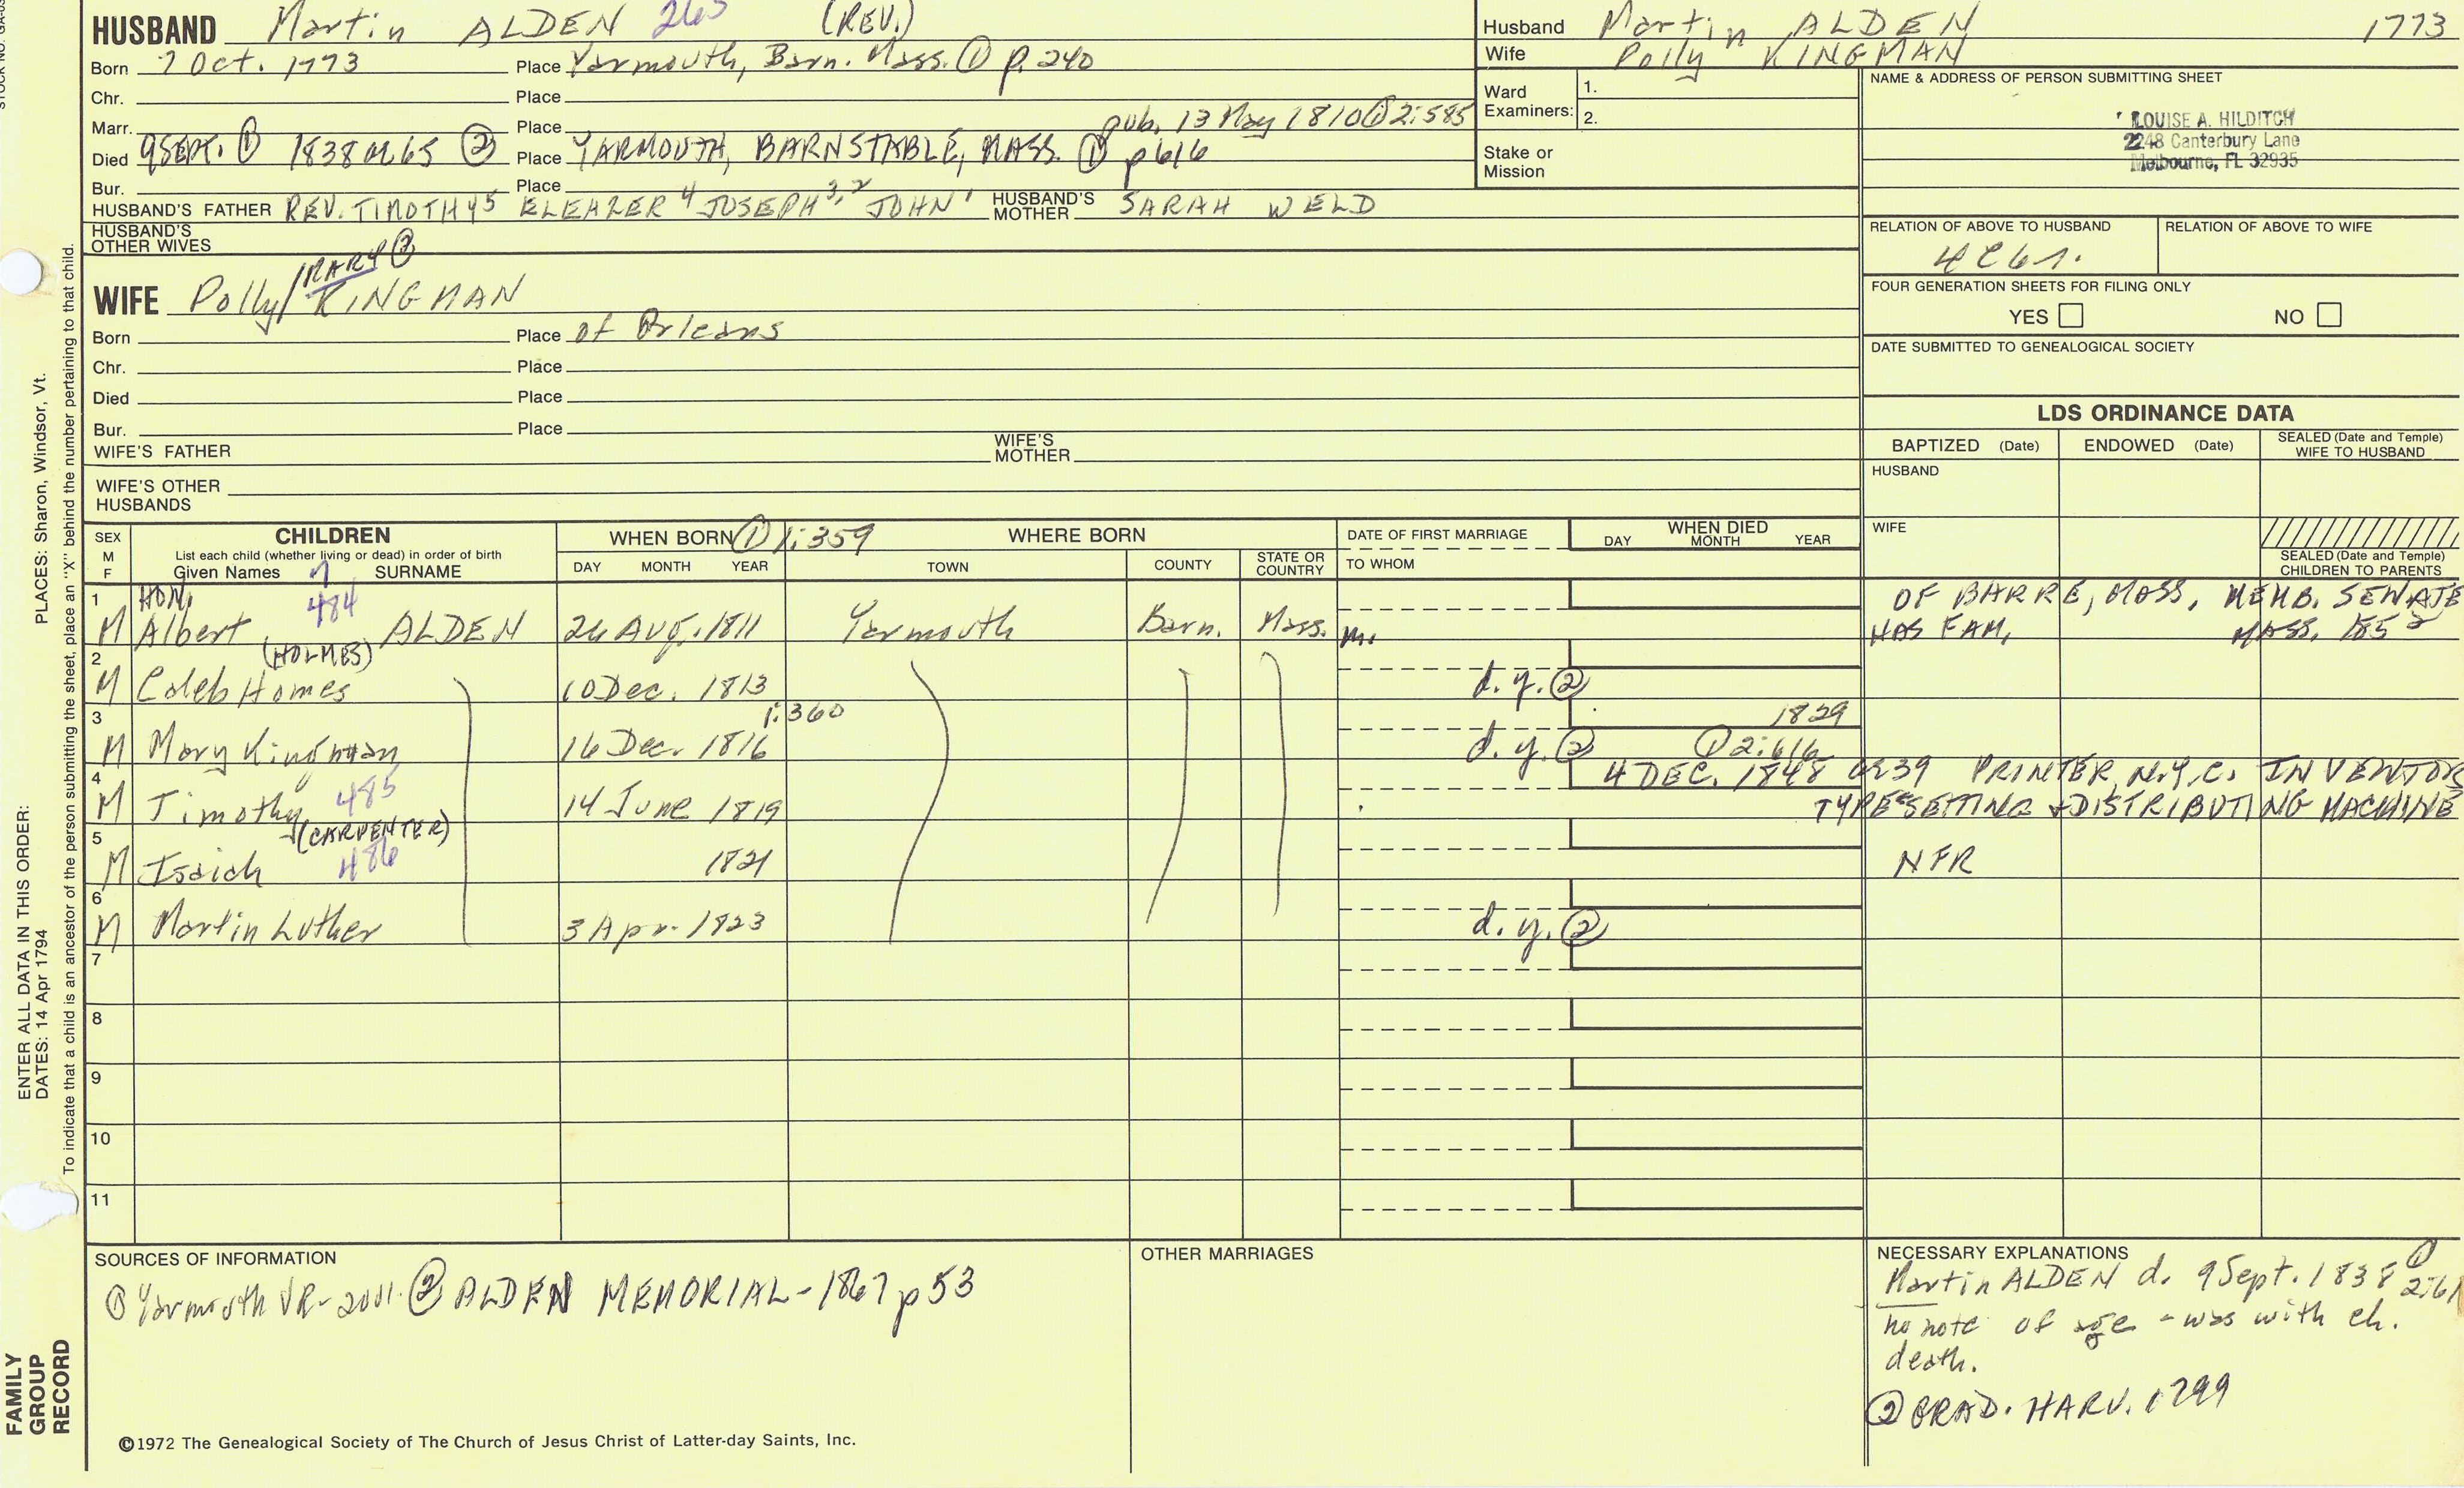 HUSBAND Martin ALDEN 263 (REV.)
Born 7 Oct. 1773 Place Yarmouth, Barn. Mass. ① p. 240
Chr. Place
Marr. Place pub. 13 May 1810 ① 2:585
Died 9 SEPT. ① 1838 AE 65 ② Place YARMOUTH, BARNSTABLE, MASS. ① p 616
Bur. Place
HUSBAND'S FATHER REV. TIMOTHY 5 ELEAZER 4 JOSEPH 3, 2 JOHN 1 HUSBAND'S MOTHER SARAH WELD
HUSBAND'S OTHER WIVES
WIFE Polly/MARY ② KINGMAN
Born Place of Orleans
Chr. Place
Died Place
Bur. Place
WIFE'S FATHER WIFE'S MOTHER
WIFE'S OTHER HUSBANDS
Husband Martin ALDEN 1773
Wife Polly KINGMAN
Ward Examiners: 1. 2.
Stake or Mission
NAME & ADDRESS OF PERSON SUBMITTING SHEET
LOUISE A. HILDITCH
2248 Canterbury Lane
Melbourne, FL 32935
RELATION OF ABOVE TO HUSBAND RELATION OF ABOVE TO WIFE
FOUR GENERATION SHEETS FOR FILING ONLY
YES NO
DATE SUBMITTED TO GENEALOGICAL SOCIETY
LDS ORDINANCE DATA
BAPTIZED (Date) ENDOWED (Date) SEALED (Date and Temple) WIFE TO HUSBAND
HUSBAND
WIFE
SEALED (Date and Temple) CHILDREN TO PARENTS
SEX M F CHILDREN List each child (whether living or dead) in order of birth Given Names SURNAME
WHEN BORN ① 1:359 DAY MONTH YEAR
WHERE BORN TOWN COUNTY STATE OR COUNTRY
DATE OF FIRST MARRIAGE TO WHOM
WHEN DIED DAY MONTH YEAR
1 M HON. Albert 484 ALDEN 26 AUG. 1811 Yarmouth Barn. Mass. m. OF BARRE, MASS, MEMB. SENATE
HAS FAM, MASS. 1852
2 M Caleb Homes (HOLMES) 10 Dec. 1813 d. y. ②
3 M Mary Kingman 16 Dec. 1816 1:360 d. y. ② 1829
4 M Timothy 485 14 June 1819 ① 2:616 4 DEC. 1848 AE 39 PRINTER, N.Y.C. INVENTOR
TYPESETTING & DISTRIBUTING MACHINE
5 M Isaiah (CARPENTER) 486 1821 NFR
6 M Martin Luther 3 Apr. 1823 d. y. ②
7
8
9
10
11
SOURCES OF INFORMATION
① Yarmouth VR- ② ALDEN MEMORIAL - 1867 p 53
OTHER MARRIAGES
NECESSARY EXPLANATIONS
Martin ALDEN d. 9 Sept. 1838 ① 2:61
no note of age - was with ch.
death.
② GRAD. HARV. 1799
©1972 The Genealogical Society of The Church of Jesus Christ of Latter-day Saints, Inc.
PLACES: Sharon, Windsor, Vt.
ENTER ALL DATA IN THIS ORDER:
DATES: 14 Apr 1794
To indicate that a child is an ancestor of the person submitting the sheet, place an "X" behind the number pertaining to that child.
FAMILY GROUP RECORD